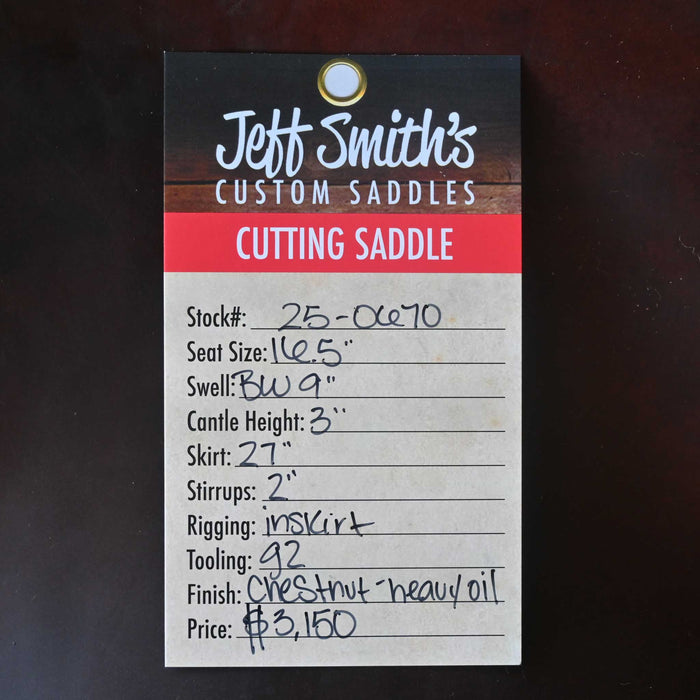 Jeff Smith's
CUSTOM SADDLES
CUTTING SADDLE
Stock#: 25-0670
Seat Size: 16.5"
Swell: BW 9"
Cantle Height: 3"
Skirt: 27"
Stirrups: 2"
Rigging: inskirt
Tooling: 92
Finish: Chestnut-heavy oil
Price: $3,150